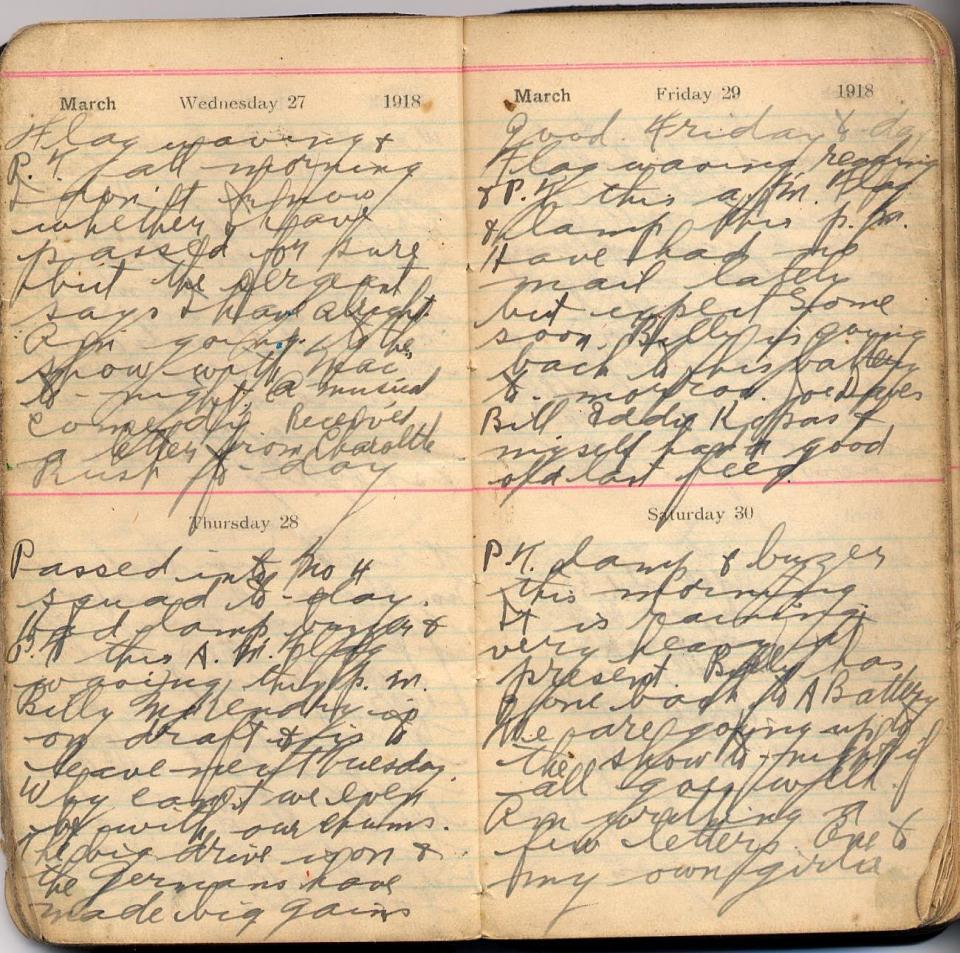 March Wednesday 27 1918
Flag waving &
P.T. all morning
I don't know
whether I have
passed for sure
but the sergeant
says I have alright.
Am going to the
show with Mac
to-night, a musical
comedy. Received
a letter from Charlotte
Rush to-day
Thursday 28
Passed into No 4
squad to-day.
Had lamp, buzzer &
P.T this A.M. Flag
waving this p.m.
Billy McKendry is
on draft & is to
leave next Tuesday
Why can't we ever
be with our chums.
The big drive is on &
the Germans have
made big gains
March Friday 29 1918
Good Friday to day
Flag waving reading
& P.T. this a.m. Flag
& lamp this p.m.
Have had no
mail lately
but expect some
soon. Billy is going
back to his battery
to-morrow. Joe Dawes
Bill Eddie &
myself had a good
old last feed
Saturday 30
P.T. lamp & buzzer
this morning.
It is raining
very heavy at
present. Billy has
gone back to A Battery
We are going up to
the show to-night if
all goes well.
Am writing a
few letters. One to
my own girlie